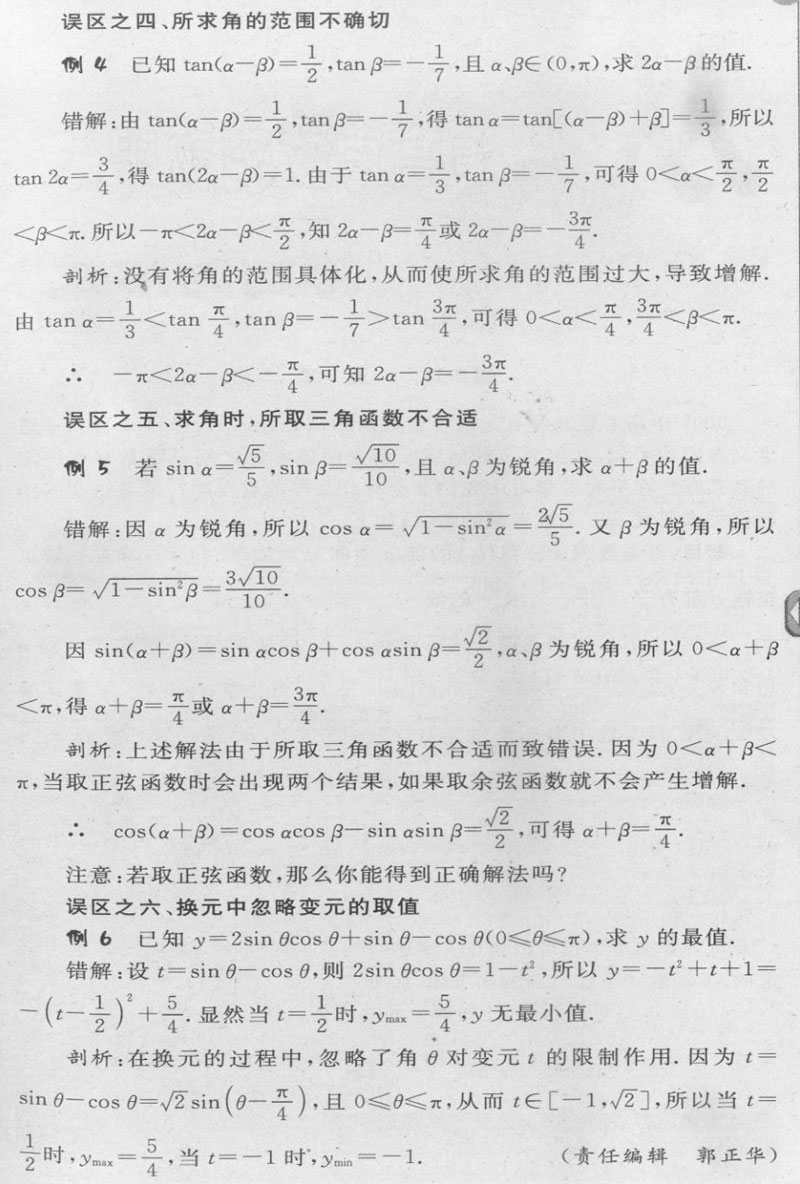 误区之四、所求角的范围不确切
例4 已知 tan(α－β)＝1/2,tan β＝－1/7,且 α、β∈(0,π),求 2α－β的值.
错解:由 tan(α－β)＝1/2,tan β＝－1/7,得 tan α＝tan[(α－β)＋β]＝1/3,所以
tan 2α＝3/4,得 tan(2α－β)＝1. 由于 tan α＝1/3,tan β＝－1/7,可得 0＜α＜π/2,π/2
＜β＜π. 所以－π＜2α－β＜π/2,知 2α－β＝π/4或 2α－β＝－3π/4.
剖析:没有将角的范围具体化,从而使所求角的范围过大,导致增解.
由 tan α＝1/3＜tan π/4,tan β＝－1/7＞tan 3π/4,可得 0＜α＜π/4,3π/4＜β＜π.
∴ －π＜2α－β＜－π/4,可知 2α－β＝－3π/4.
误区之五、求角时,所取三角函数不合适
例5 若 sin α＝√5/5,sin β＝√10/10,且 α、β为锐角,求 α＋β的值.
错解:因 α 为锐角,所以 cos α＝√(1－sin²α)＝2√5/5. 又 β 为锐角,所以
cos β＝√(1－sin²β)＝3√10/10.
因 sin(α＋β)＝sin αcos β＋cos αsin β＝√2/2,α、β 为锐角,所以 0＜α＋β
＜π,得 α＋β＝π/4或 α＋β＝3π/4.
剖析:上述解法由于所取三角函数不合适而致错误. 因为 0＜α＋β＜
π,当取正弦函数时会出现两个结果,如果取余弦函数就不会产生增解.
∴ cos(α＋β)＝cos αcos β－sin αsin β＝√2/2,可得 α＋β＝π/4.
注意:若取正弦函数,那么你能得到正确解法吗?
误区之六、换元中忽略变元的取值
例6 已知 y＝2sin θcos θ＋sin θ－cos θ(0≤θ≤π),求 y 的最值.
错解:设 t＝sin θ－cos θ,则 2sin θcos θ＝1－t²,所以 y＝－t²＋t＋1＝
－(t－1/2)²＋5/4. 显然当 t＝1/2时,ymax＝5/4,y 无最小值.
剖析:在换元的过程中,忽略了角 θ 对变元 t 的限制作用. 因为 t＝
sin θ－cos θ＝√2 sin(θ－π/4),且 0≤θ≤π,从而 t∈[－1,√2],所以当 t＝
1/2时,ymax＝5/4,当 t＝－1 时,ymin＝－1. (责任编辑 郭正华)